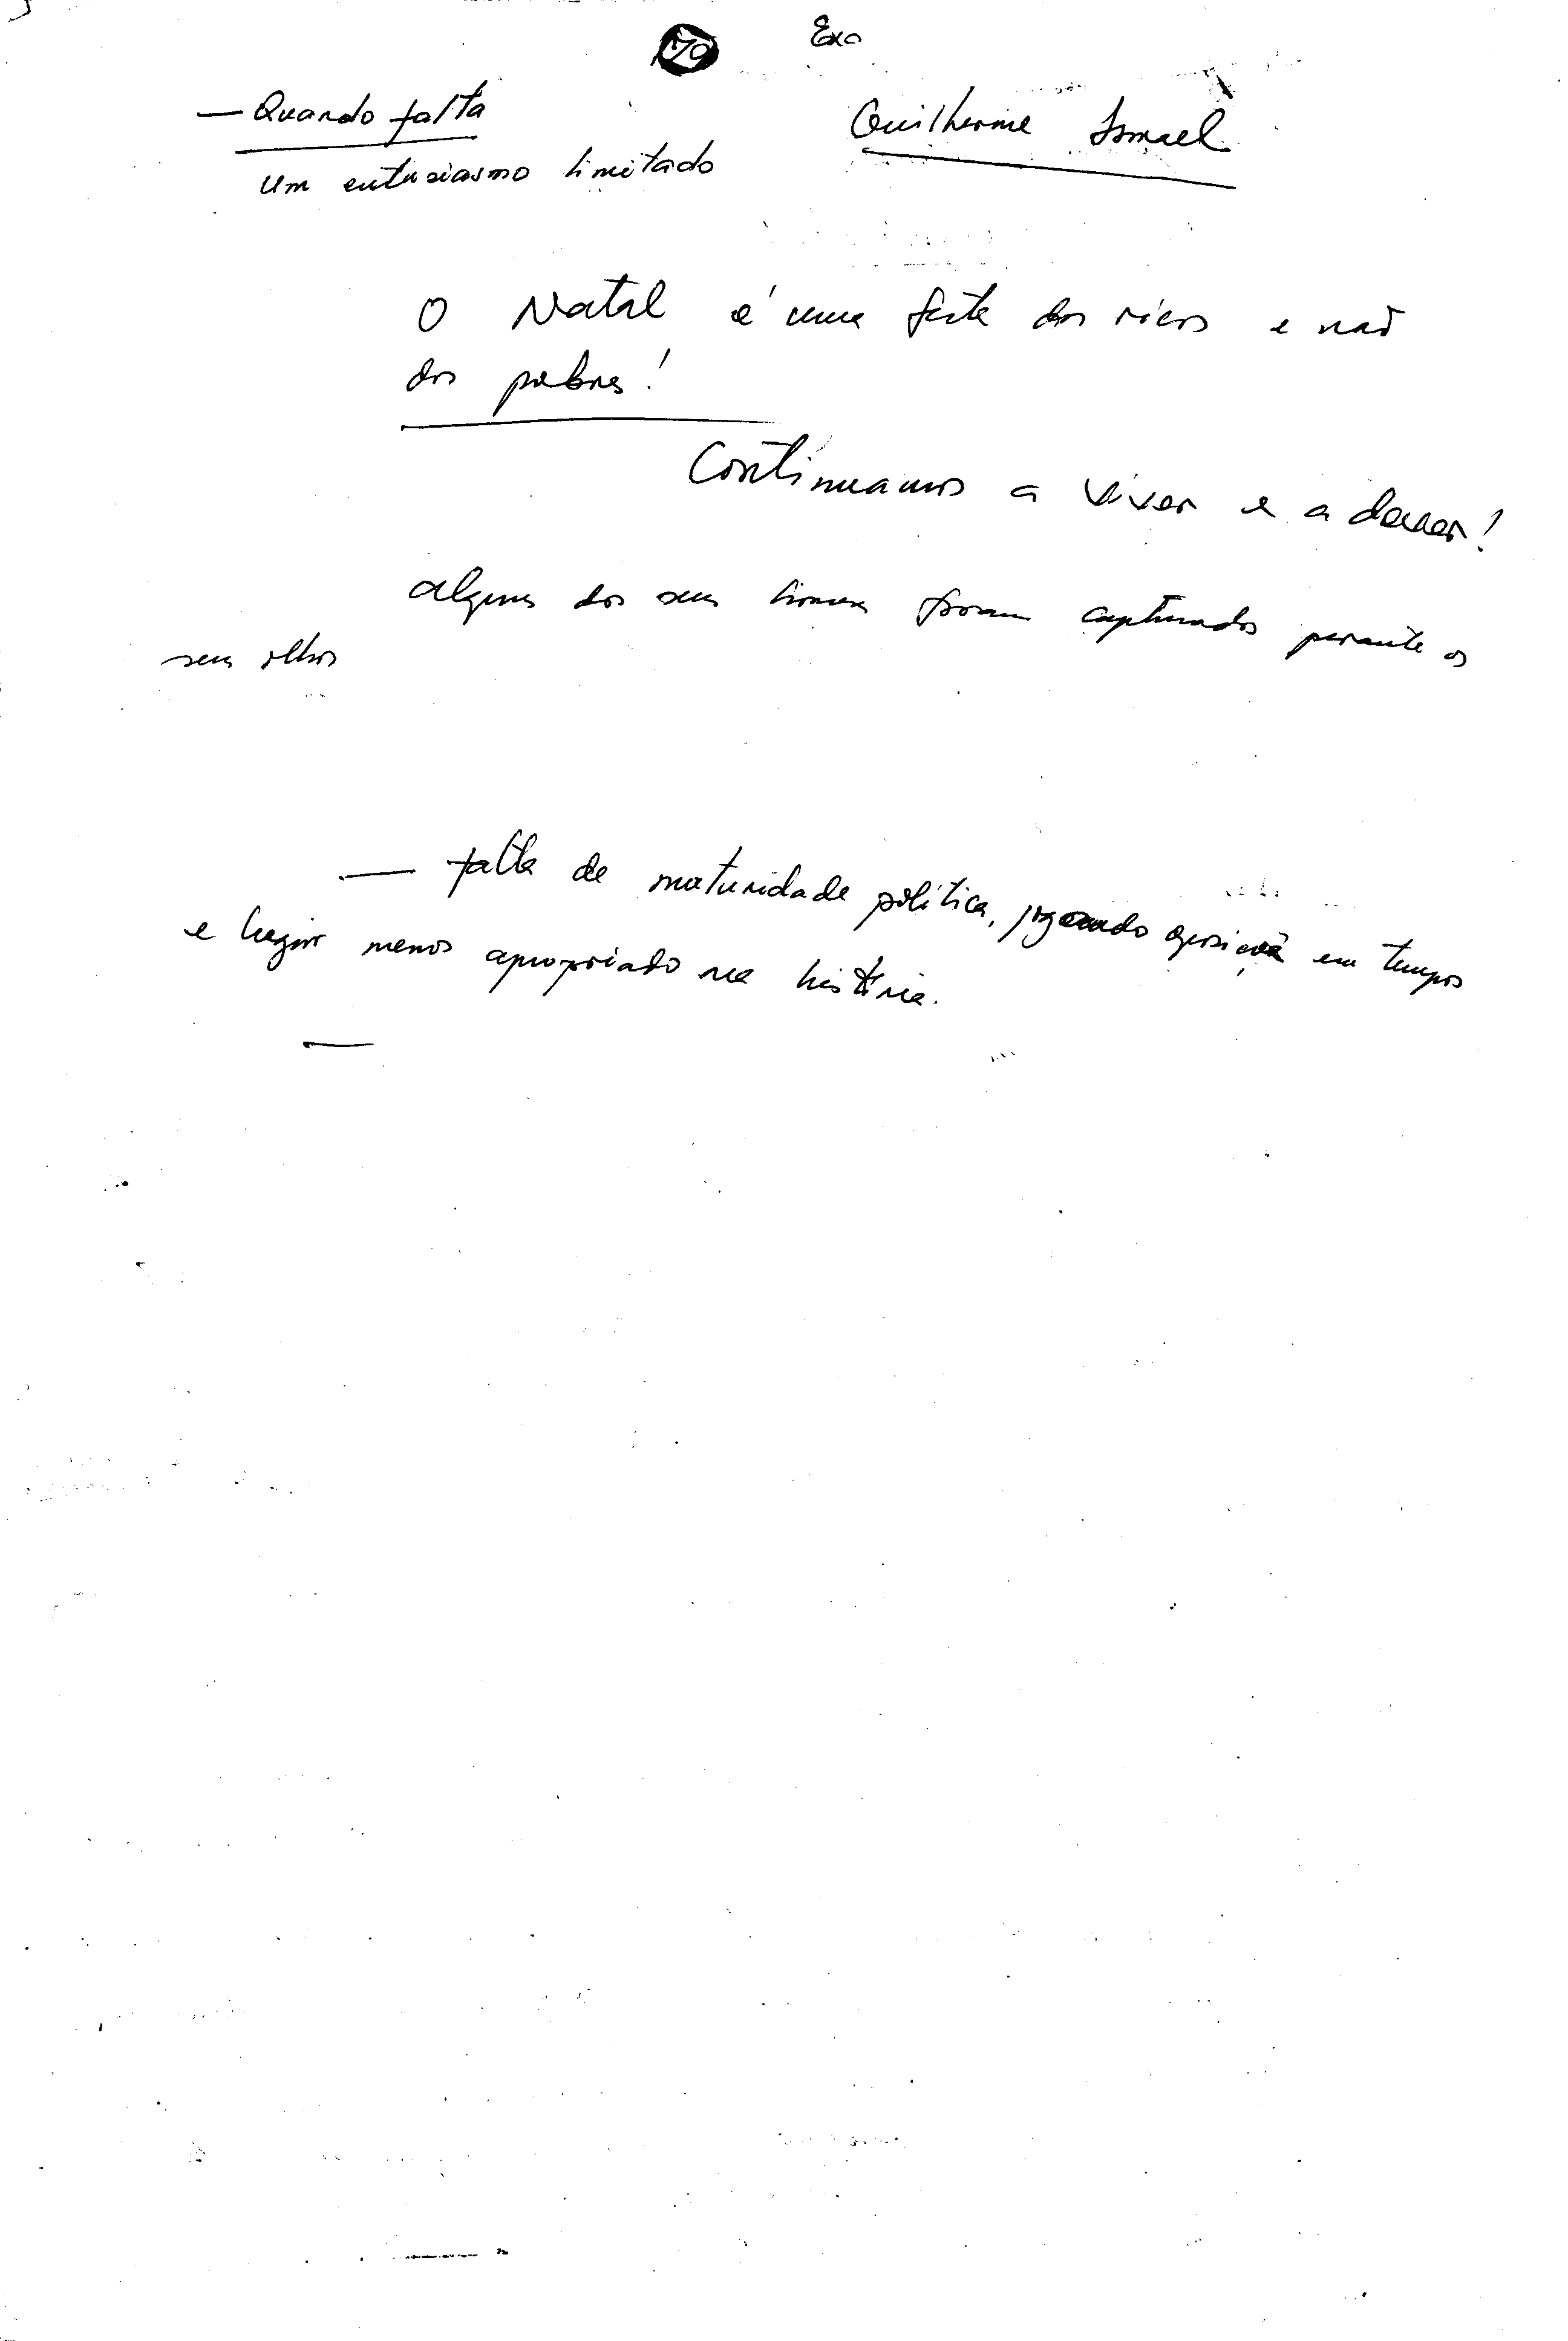 Exa
— Quando falta
um entusiasmo limitado
Guilherme Ismael
O Natal é uma festa dos ricos e não
dos pobres!
Continuamos a viver e a
alguns dos seus foram capturados perante os
seus olhos
— falta de maturidade política, em tempos
e lugar menos apropriado na história.
—